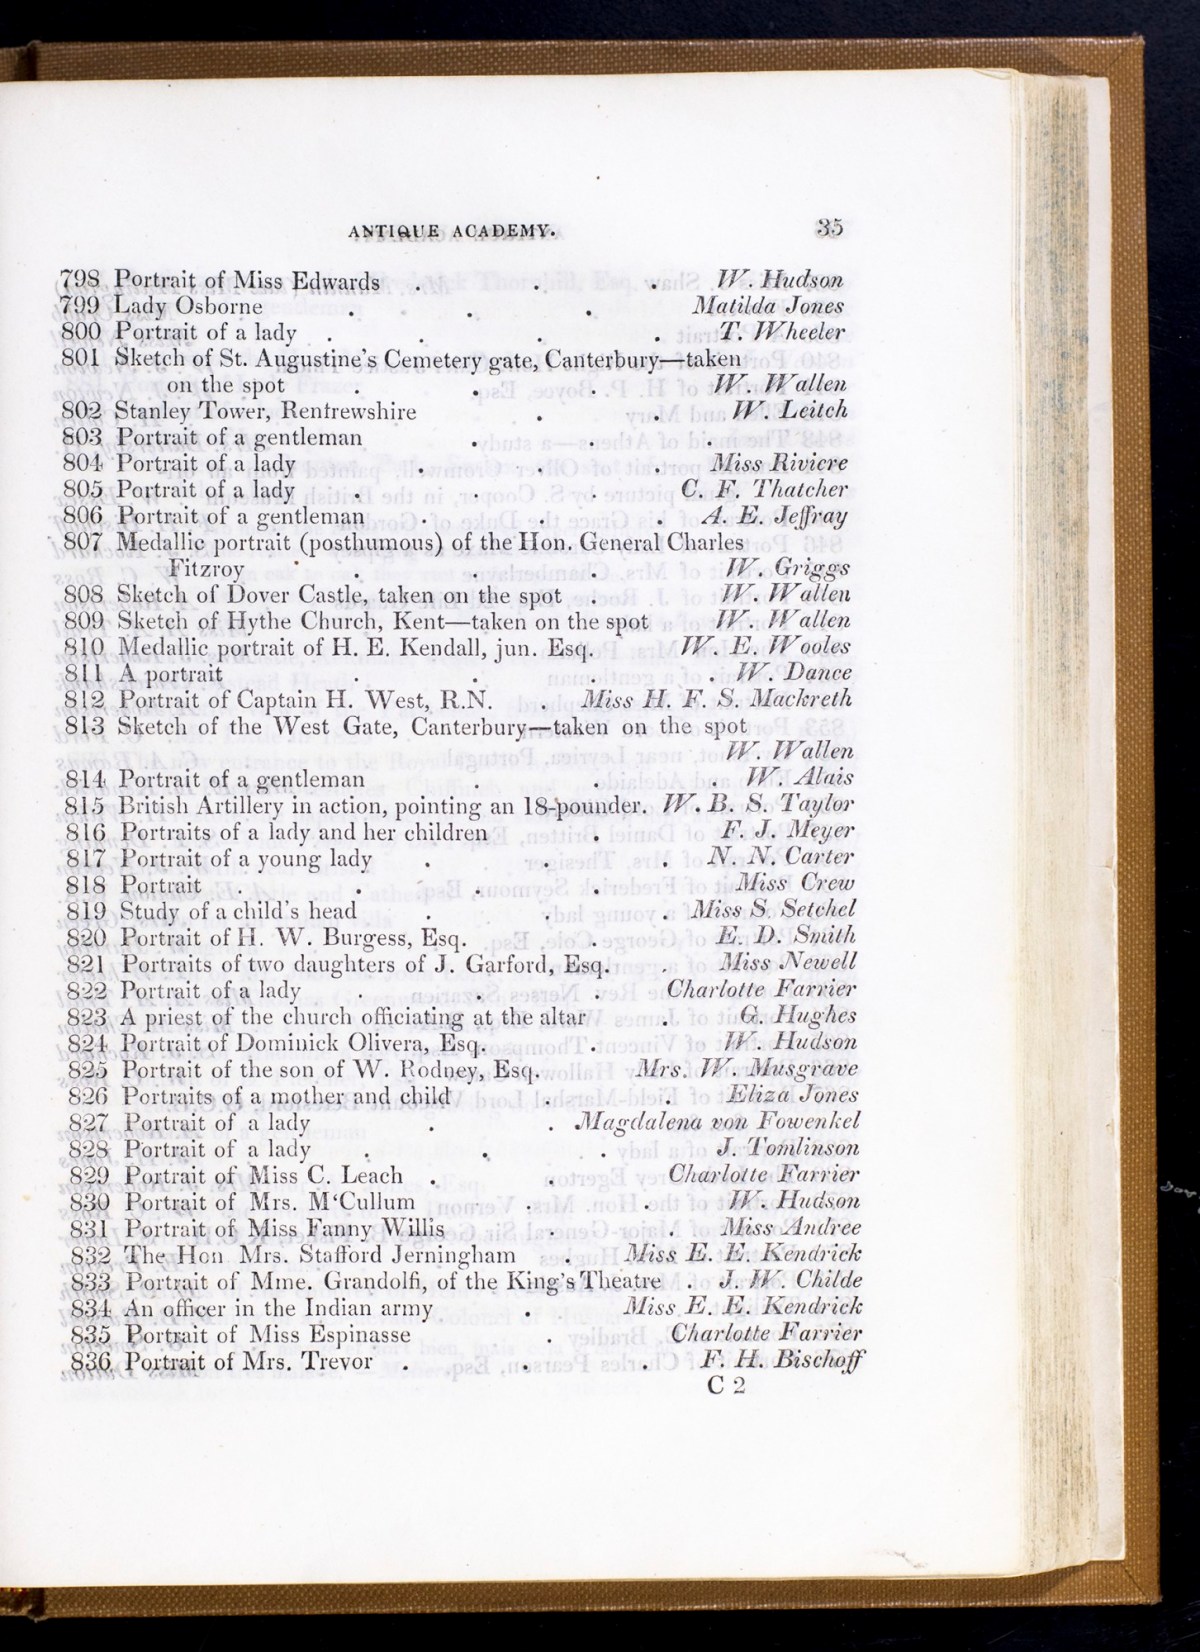 ANTIQUE ACADEMY. 35
798 Portrait of Miss Edwards . . . W. Hudson
799 Lady Osborne . . . Matilda Jones
800 Portrait of a lady . . . . T. Wheeler
801 Sketch of St. Augustine's Cemetery gate, Canterbury—taken
on the spot . . . W. Wallen
802 Stanley Tower, Rentrewshire . . W. Leitch
803 Portrait of a gentleman . . .
804 Portrait of a lady . . . Miss Riviere
805 Portrait of a lady . . . C. F. Thatcher
806 Portrait of a gentleman . . . A. E. Jeffray
807 Medallic portrait (posthumous) of the Hon. General Charles
Fitzroy . . . . W. Griggs
808 Sketch of Dover Castle, taken on the spot . W. Wallen
809 Sketch of Hythe Church, Kent—taken on the spot W. Wallen
810 Medallic portrait of H. E. Kendall, jun. Esq. W. E. Wooles
811 A portrait . . . . W. Dance
812 Portrait of Captain H. West, R.N. . Miss H. F. S. Mackreth
813 Sketch of the West Gate, Canterbury—taken on the spot
W. Wallen
814 Portrait of a gentleman . . W. Alais
815 British Artillery in action, pointing an 18-pounder. W. B. S. Taylor
816 Portraits of a lady and her children . F. J. Meyer
817 Portrait of a young lady . . . N. N. Carter
818 Portrait . . . . Miss Crew
819 Study of a child's head . . . Miss S. Setchel
820 Portrait of H. W. Burgess, Esq. . E. D. Smith
821 Portraits of two daughters of J. Garford, Esq. . Miss Newell
822 Portrait of a lady . . . Charlotte Farrier
823 A priest of the church officiating at the altar . G. Hughes
824 Portrait of Dominick Olivera, Esq. . W. Hudson
825 Portrait of the son of W. Rodney, Esq. Mrs. W. Musgrave
826 Portraits of a mother and child . . Eliza Jones
827 Portrait of a lady . . Magdalena von Fowenkel
828 Portrait of a lady . . . J. Tomlinson
829 Portrait of Miss C. Leach . . Charlotte Farrier
830 Portrait of Mrs. M'Cullum . . W. Hudson
831 Portrait of Miss Fanny Willis . . Miss Andree
832 The Hon. Mrs. Stafford Jerningham . Miss E. E. Kendrick
833 Portrait of Mme. Grandolfi, of the King's Theatre . J. W. Childe
834 An officer in the Indian army . Miss E. E. Kendrick
835 Portrait of Miss Espinasse . Charlotte Farrier
836 Portrait of Mrs. Trevor . . . F. H. Bischoff
C 2